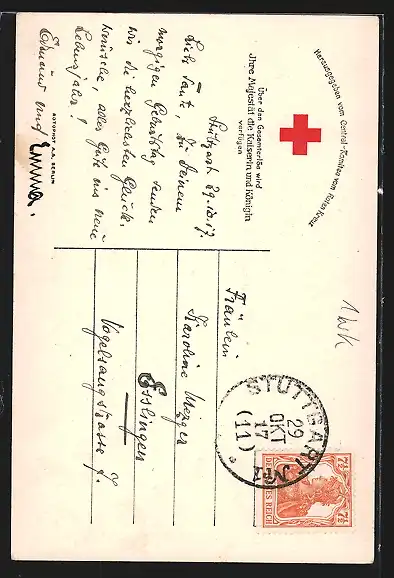 Herausgegeben vom Central-Komitee vom Roten Kreuz
Über den Gesamterlös wird
Ihre Majestät die Kaiserin und Königin
verfügen
Stuttgart 29.10.17.
Liebe Tante, zu Deinem
morgigen Geburtstag senden
wir die herzlichsten Glück-
wünsche, alles Gute ins neue
Lebensjahr!
Eduard und Emma.
ROTOPHOT A.G. BERLIN
Fräulein
Karoline Metzger
Esslingen
Vogelsangstrasse
1 WK
STUTTGART No 1
29
OKT
17
(11)
7½ 7½
DEUTSCHES REICH